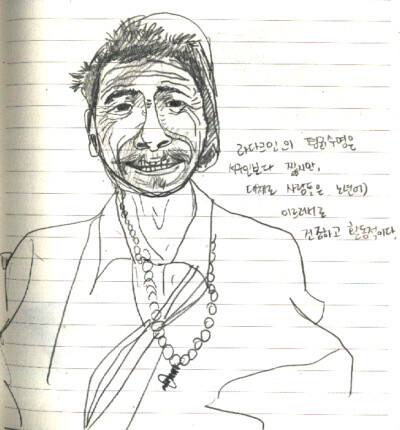 라다크인의 평균수명은
서구인보다 짧지만,
대체로 사람들은 노년에
이르러서도
건강하고 활동적이다.